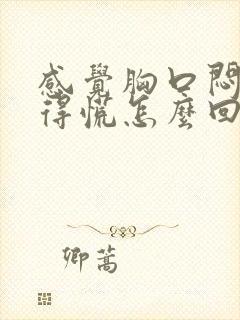 感覺胸口悶
得慌怎麼回
卿蒿